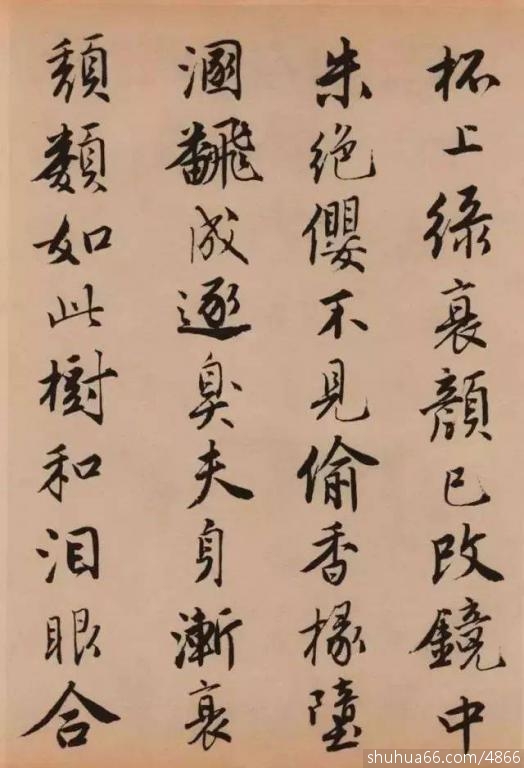 杯上緑衰顔已改鏡中
朱絶纓不見偷香椽墮
溷飜成逐臭夫身漸衰
頽類如此樹和泪眼合
shuhua66.com/4866